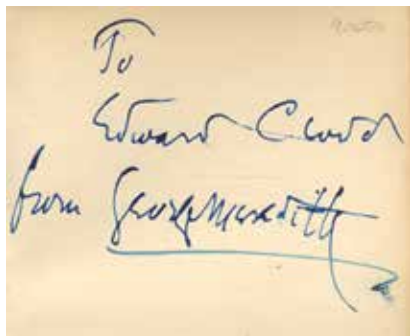 To
Edward Clodd
from George Meredith